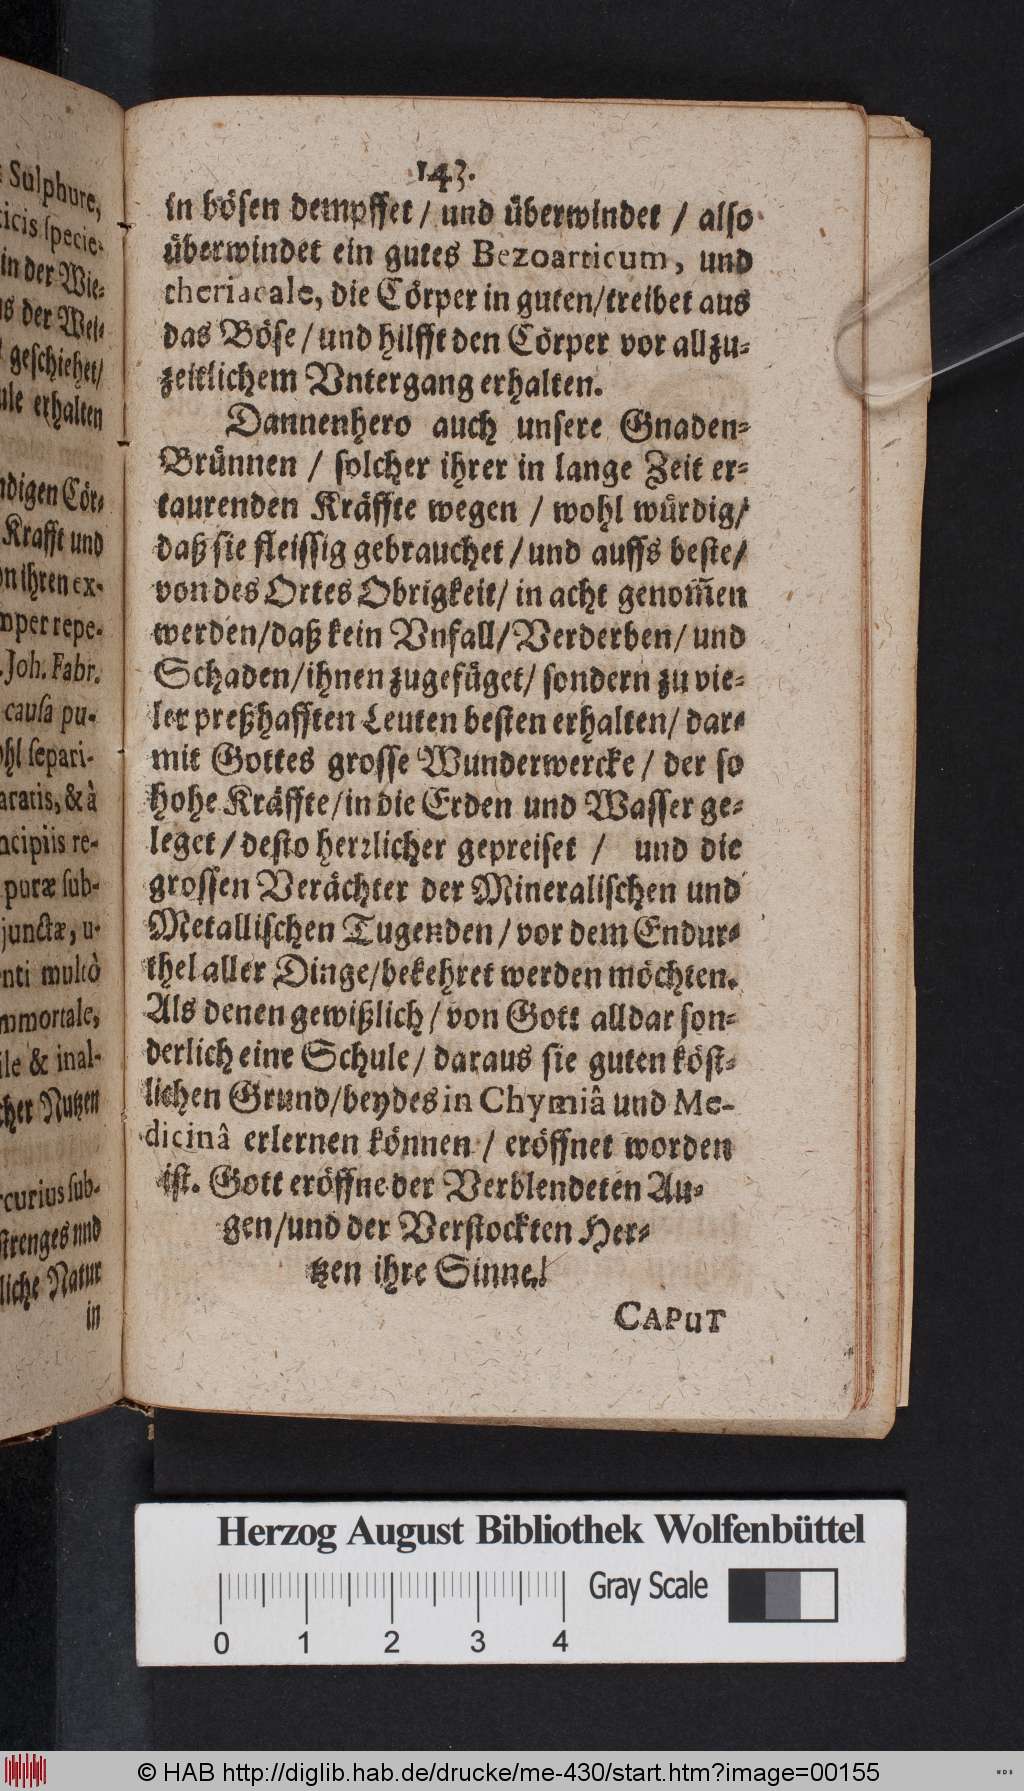 Sulphure,
ticis specie-
in der Wie-
der Wel-
geschiehet/
erhalten
Cör-
Krafft und
ihren ex-
repe-
Joh. Fabr.
causa pu-
separi-
& à
re-
puræ sub-
junctæ, u-
multò
& inal-
Nutzen
sub-
strenges und
Natur
in
143.
in bösen dempffet / und überwindet / also
überwindet ein gutes Bezoarticum, und
theriacale, die Cörper in guten/treibet aus
das Böse / und hilfft den Cörper vor allzu-
zeitlichem Vntergang erhalten.
Dannenhero auch unsere Gnaden-
Brünnen / solcher ihrer in lange Zeit er-
taurenden Kräffte wegen / wohl würdig/
daß sie fleissig gebrauchet / und auffs beste/
von des Ortes Obrigkeit/ in acht genom̃en
werden/daß kein Vnfall/Verderben/ und
Schaden/ihnen zugefüget/ sondern zu vie-
ler preßhafften Leuten besten erhalten/ dar-
mit Gottes grosse Wunderwercke / der so
hohe Kräffte/in die Erden und Wasser ge-
leget / desto herꝛlicher gepreiset / und die
grossen Verächter der Mineralischen und
Metallischen Tugenden / vor dem Endur-
thel aller Dinge/bekehret werden möchten.
Als denen gewißlich / von Gott alldar son-
derlich eine Schule / daraus sie guten köst-
lichen Grund/beydes in Chymiâ und Me-
dicinâ erlernen können / eröffnet worden
ist. Gott eröffne der Verblendeten Au-
gen/und der Verstockten Her-
tzen ihre Sinne!
CAPUT
Herzog August Bibliothek Wolfenbüttel
Gray Scale
0 1 2 3 4
© HAB http://diglib.hab.de/drucke/me-430/start.htm?image=00155